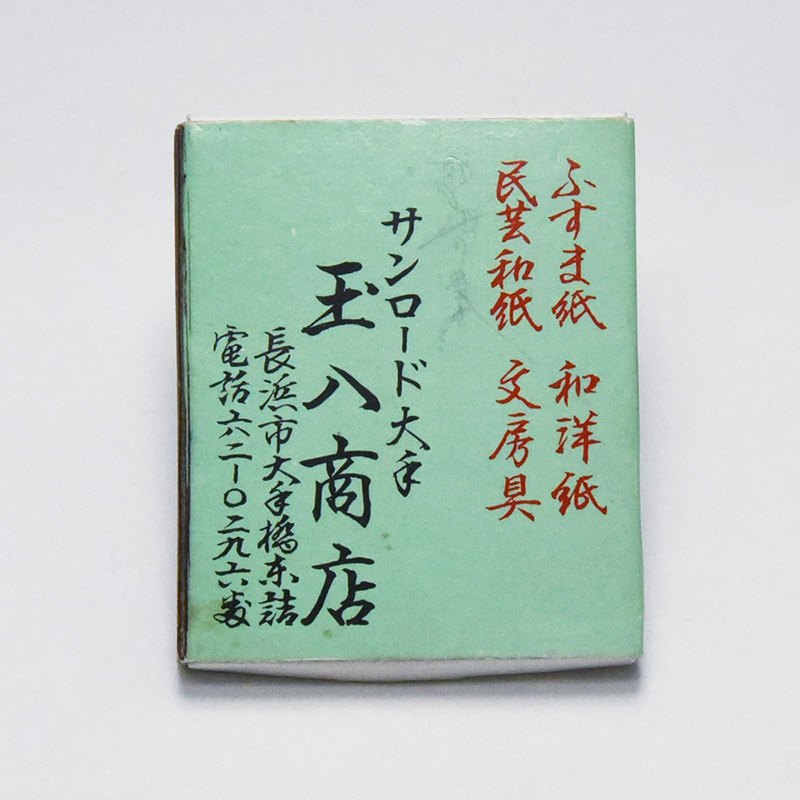 ふすま紙 和洋紙
民芸和紙 文房具
サンロード大手
玉八商店
長浜市大手橋东詰
電話六二-〇二九六番